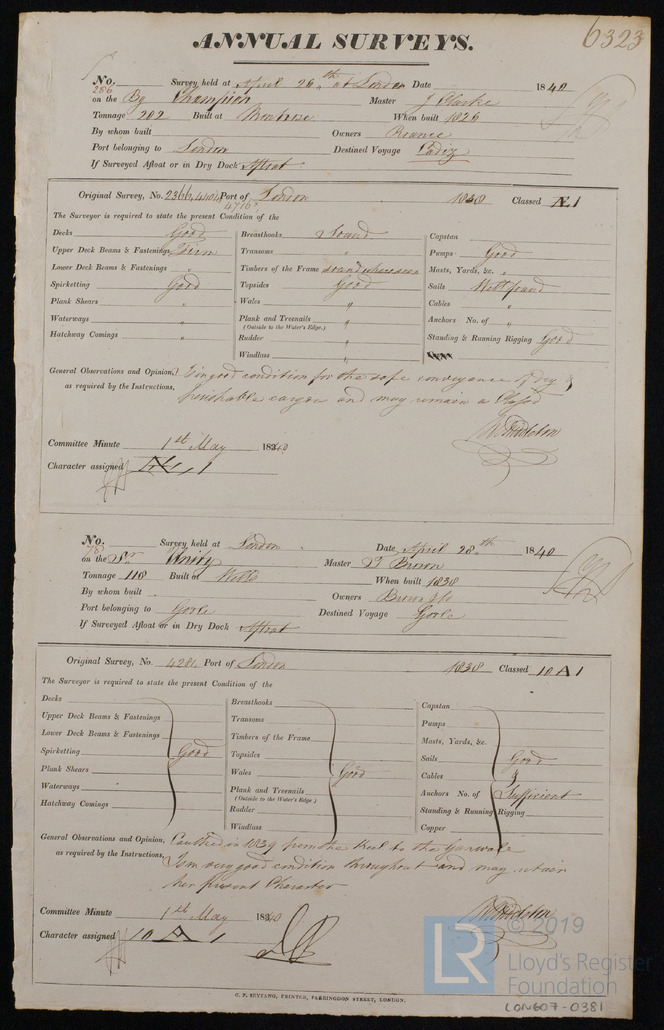 6323
ANNUAL SURVEYS.
No. 286 Survey held at April 26th at London Date 1840
on the Bg Champion Master J Clarke
Tonnage 202 Built at Montrose When built 1826
By whom built Owners
Port belonging to London Destined Voyage Cadiz
If Surveyed Afloat or in Dry Dock Afloat
Original Survey, No. 2366, Port of London 1838 Classed Æ1
The Surveyor is required to state the present Condition of the
Decks Good
Upper Deck Beams & Fastenings Firm
Lower Deck Beams & Fastenings "
Spirketting Good
Plank Shears "
Waterways "
Hatchway Comings "
Breasthooks Sound
Transoms "
Timbers of the Frame sound where seen
Topsides Good
Wales "
Plank and Treenails "
(Outside to the Water's Edge.)
Rudder "
Windlass "
Capstan
Pumps Good
Masts, Yards, &c. "
Sails Well found
Cables "
Anchors No. of "
Standing & Running Rigging Good
General Observations and Opinion, Is in good condition for the safe conveyance of dry &
as required by the Instructions, perishable cargoes and may remain as Classed
Committee Minute 1st May 1840
Character assigned Æ 1
No. 78 Survey held at London Date April 28th 1840
on the Sr Unity Master T Brown
Tonnage 118 Built at When built 1838
By whom built Owners Brown & Co
Port belonging to Goole Destined Voyage Goole
If Surveyed Afloat or in Dry Dock Afloat
Original Survey, No. 4281 Port of London 1838 Classed 10 A 1
The Surveyor is required to state the present Condition of the
Decks
Upper Deck Beams & Fastenings
Lower Deck Beams & Fastenings
Spirketting Good
Plank Shears
Waterways
Hatchway Comings
Breasthooks
Transoms
Timbers of the Frame
Topsides
Wales Good
Plank and Treenails
(Outside to the Water's Edge.)
Rudder
Windlass
Capstan
Pumps
Masts, Yards, &c.
Sails Good
Cables &
Anchors No. of Sufficient
Standing & Running Rigging
Copper
General Observations and Opinion, Caulked in 1839 from the Keel to the Gunwale
as required by the Instructions, Is in very good condition throughout and may retain
her present Character
Committee Minute 1st May 1840
Character assigned 10 A 1
C. F. SEYFANG, PRINTER, FARRINGDON STREET, LONDON.
LR © 2019
Lloyd's Register
Foundation
LON607-0381